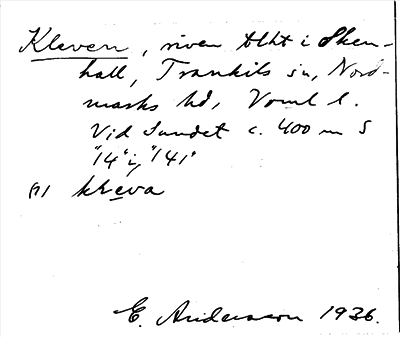 Kleven, riven tlht i Sken-
hall, Trankils sn, Nord-
marks hd, Vrml l.
Vid Sundet c. 400 m S
"14" i "141"
kleva
E. Andersson 1936.